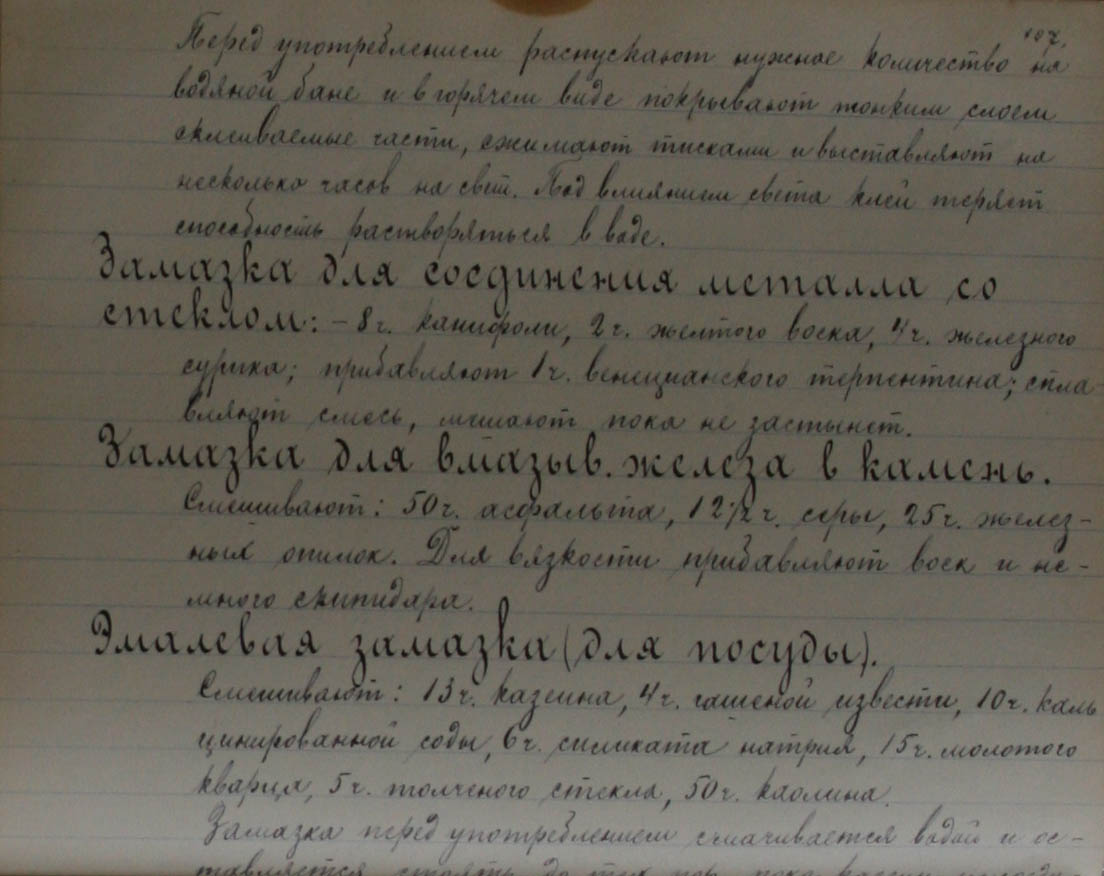 107.
Перед употреблением распускают нужное количество на
водяной бане и в горячем виде покрывают тонким слоем
склеиваемые части, сжимают тисками и выставляют на
несколько часов на свет. Под влиянием света клей теряет
способность растворяться в воде.
Замазка для соединения металла со
стеклом: – 8 г. канифоли, 2 г. желтого воска, 4 г. железного
сурика; прибавляют 1 г. венецианского терпентина; спла-
вляют смесь, мешают пока не застынет.
Замазка для вмазыв. железа в камень.
Смешивают: 50 г. асфальта, 12 1/2 г. серы, 25 г. желез-
ных опилок. Для вязкости прибавляют воск и не-
много скипидара.
Эмалевая замазка (для посуды).
Смешивают: 13 г. казеина, 4 г. гашеной извести, 10 г. каль
цинированной соды, 6 г. силиката натрия, 15 г. молотого
кварца, 5 г. толченого стекла, 50 г. каолина.
Замазка перед употреблением смачивается водой и ос-
тавляется стоять до тех пор, пока